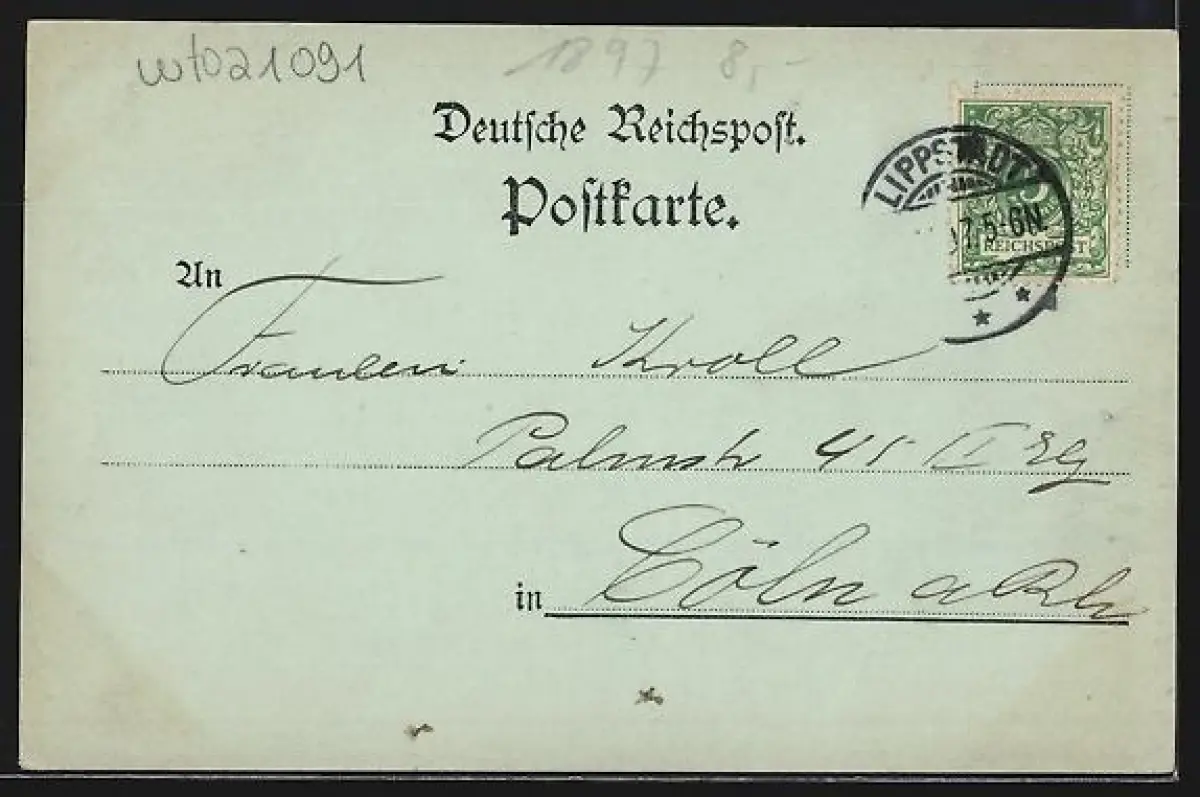 wt021091 1897 8,-
Deutsche Reichspost.
Postkarte.
LIPPSTADT
5-6N.
REICHSPOST
An
Fräulein Kroll
Palmstr 45 II Etg
in Cöln a Rh